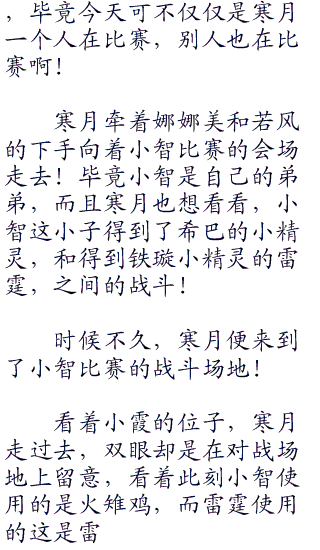 ，毕竟今天可不仅仅是寒月
一个人在比赛，别人也在比
赛啊！
寒月牵着娜娜美和若风
的下手向着小智比赛的会场
走去！毕竟小智是自己的弟
弟，而且寒月也想看看，小
智这小子得到了希巴的小精
灵，和得到铁璇小精灵的雷
霆，之间的战斗！
时候不久，寒月便来到
了小智比赛的战斗场地！
看着小霞的位子，寒月
走过去，双眼却是在对战场
地上留意，看着此刻小智使
用的是火雉鸡，而雷霆使用
的这是雷